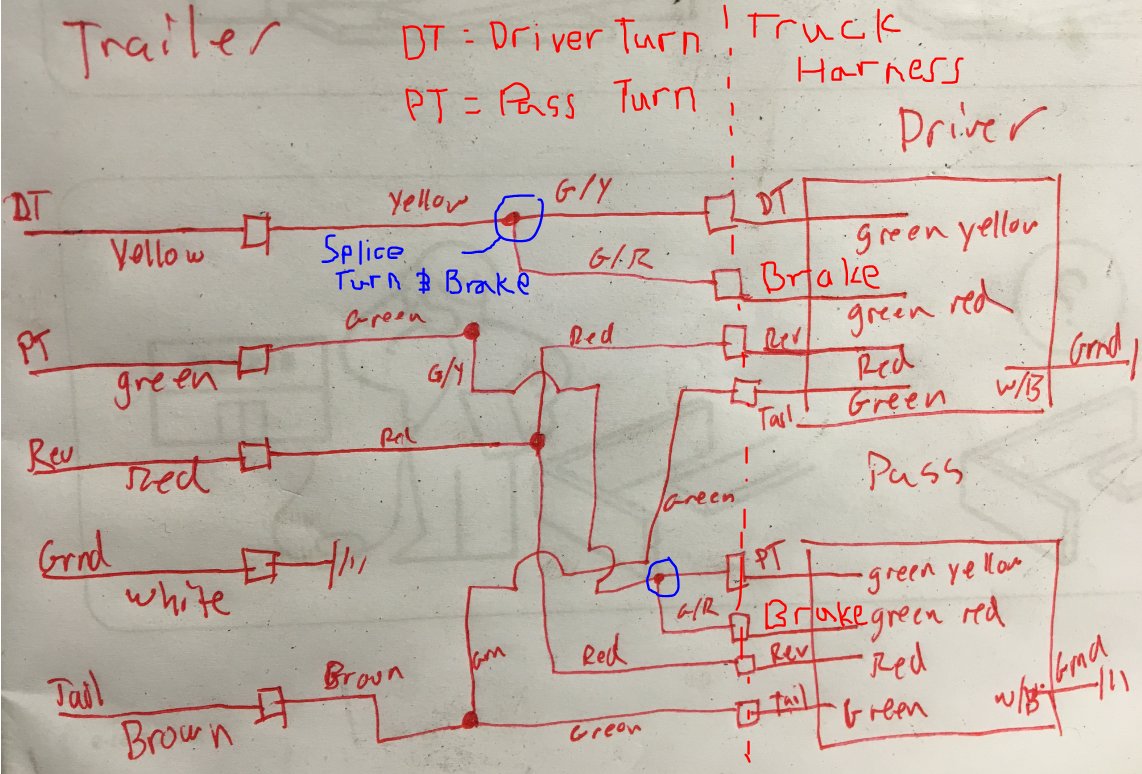 Trailer
DT = Driver Turn
PT = Pass Turn
Truck
Harness
Driver
DT
Yellow
Yellow
G/Y
DT
green yellow
Splice
Turn & Brake
G/R
Brake
green red
PT
green
Green
G/Y
Red
Rev
Red
Grnd
W/B
Tail
Green
Rev
Red
Red
Green
Pass
Grnd
white
PT
green yellow
G/R
Brake
green red
Red
Rev
Red
Grnd
W/B
Tail
Brown
Brown
grn
Green
Tail
Green